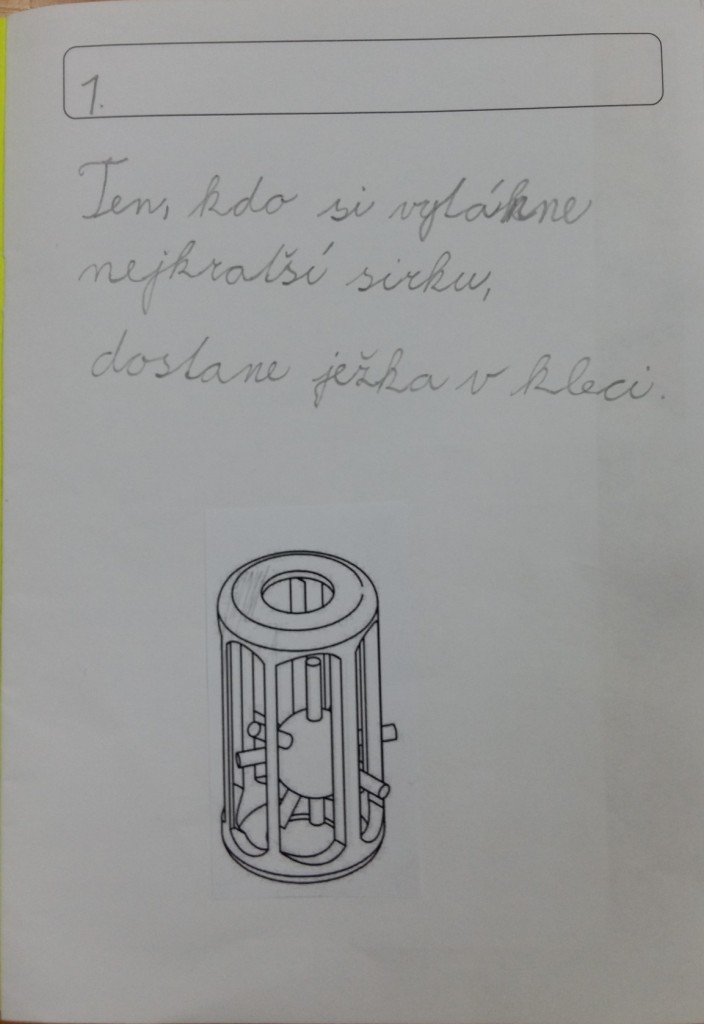 1.
Ten, kdo si vytáhne
nejkratší sirku,
dostane ježka v kleci.